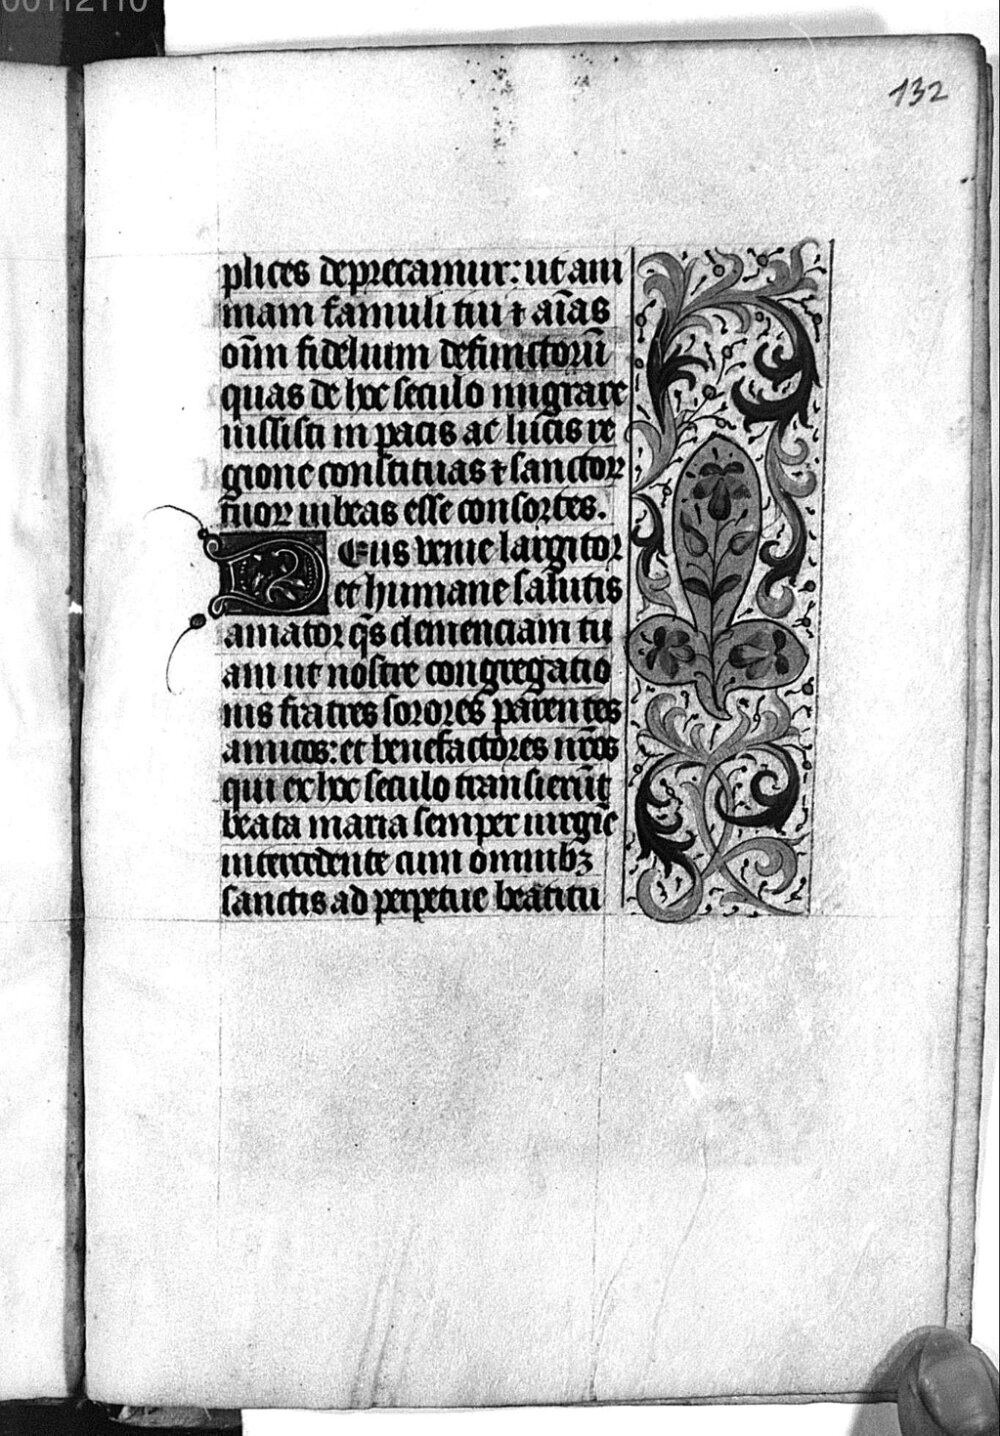 00112110
132
plices deprecamur: ut ani
mam famuli tui ⁊ aīas
oīm fidelium defunctorū
quas de hoc seculo migrare
iussisti in pacis ac lucis re
gione constituas ⁊ sanctoꝝ
tuoꝝ iubeas esse consortes.
Deus venie largitor
et humane salutis
amator q̄s clemenciam tu
am ut nostre congregatio
nis fratres sorores parentes
amicos: et benefactores nr̄os
qui ex hoc seculo transierūt
beata maria semper uirgīe
intercedente cum omnibꝫ
sanctis ad perpetue beatitu